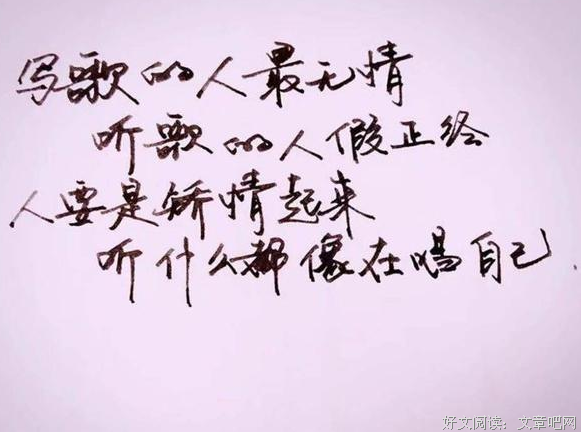 写歌的人最无情
听歌的人假正经
人要是矫情起来
听什么都像在唱自己.
好文阅读：文章吧网